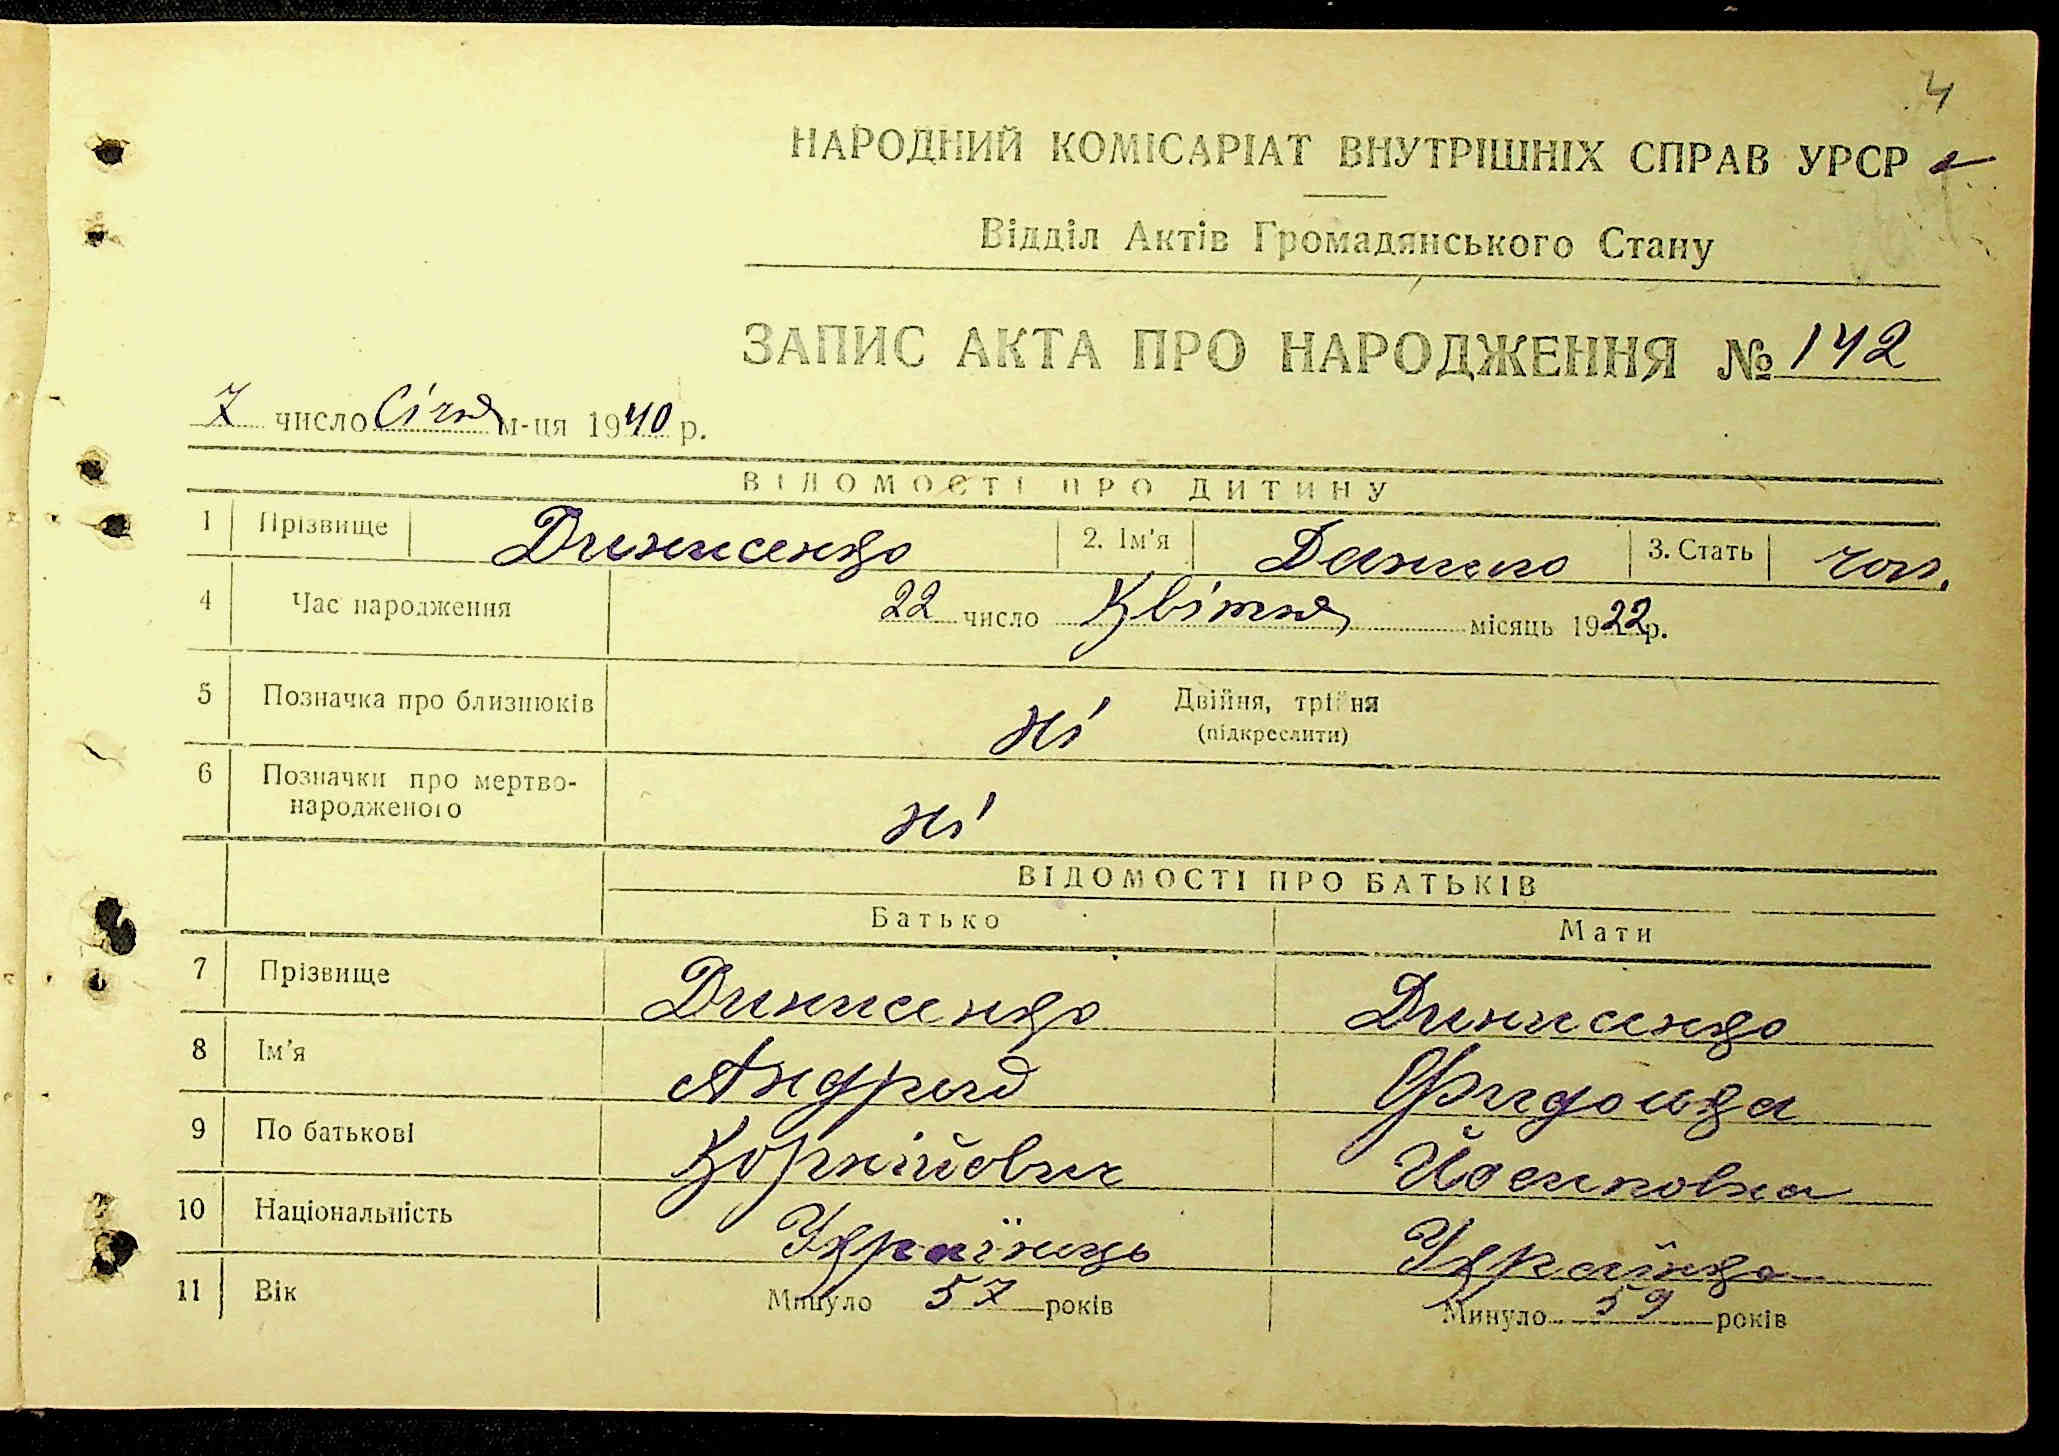 4
НАРОДНИЙ КОМІСАРІАТ ВНУТРІШНІХ СПРАВ УРСР
Відділ Актів Громадянського Стану
ЗАПИС АКТА ПРО НАРОДЖЕННЯ № 142
7 число Січня м-ця 1940 р.
ВІДОМОСТІ ПРО ДИТИНУ
1 Прізвище Динисенко 2. Ім'я Данило 3. Стать чол.
4 Час народження 22 число Квітня місяць 1922 р.
5 Позначка про близнюків ні Двійня, трійня
(підкреслити)
6 Позначки про мертво-
народженого ні
ВІДОМОСТІ ПРО БАТЬКІВ
Батько Мати
7 Прізвище Динисенко Динисенко
8 Ім'я Андрій
9 По батькові Корнійович Йосиповна
10 Національність Українець Українка
11 Вік Минуло 57 років Минуло 59 років